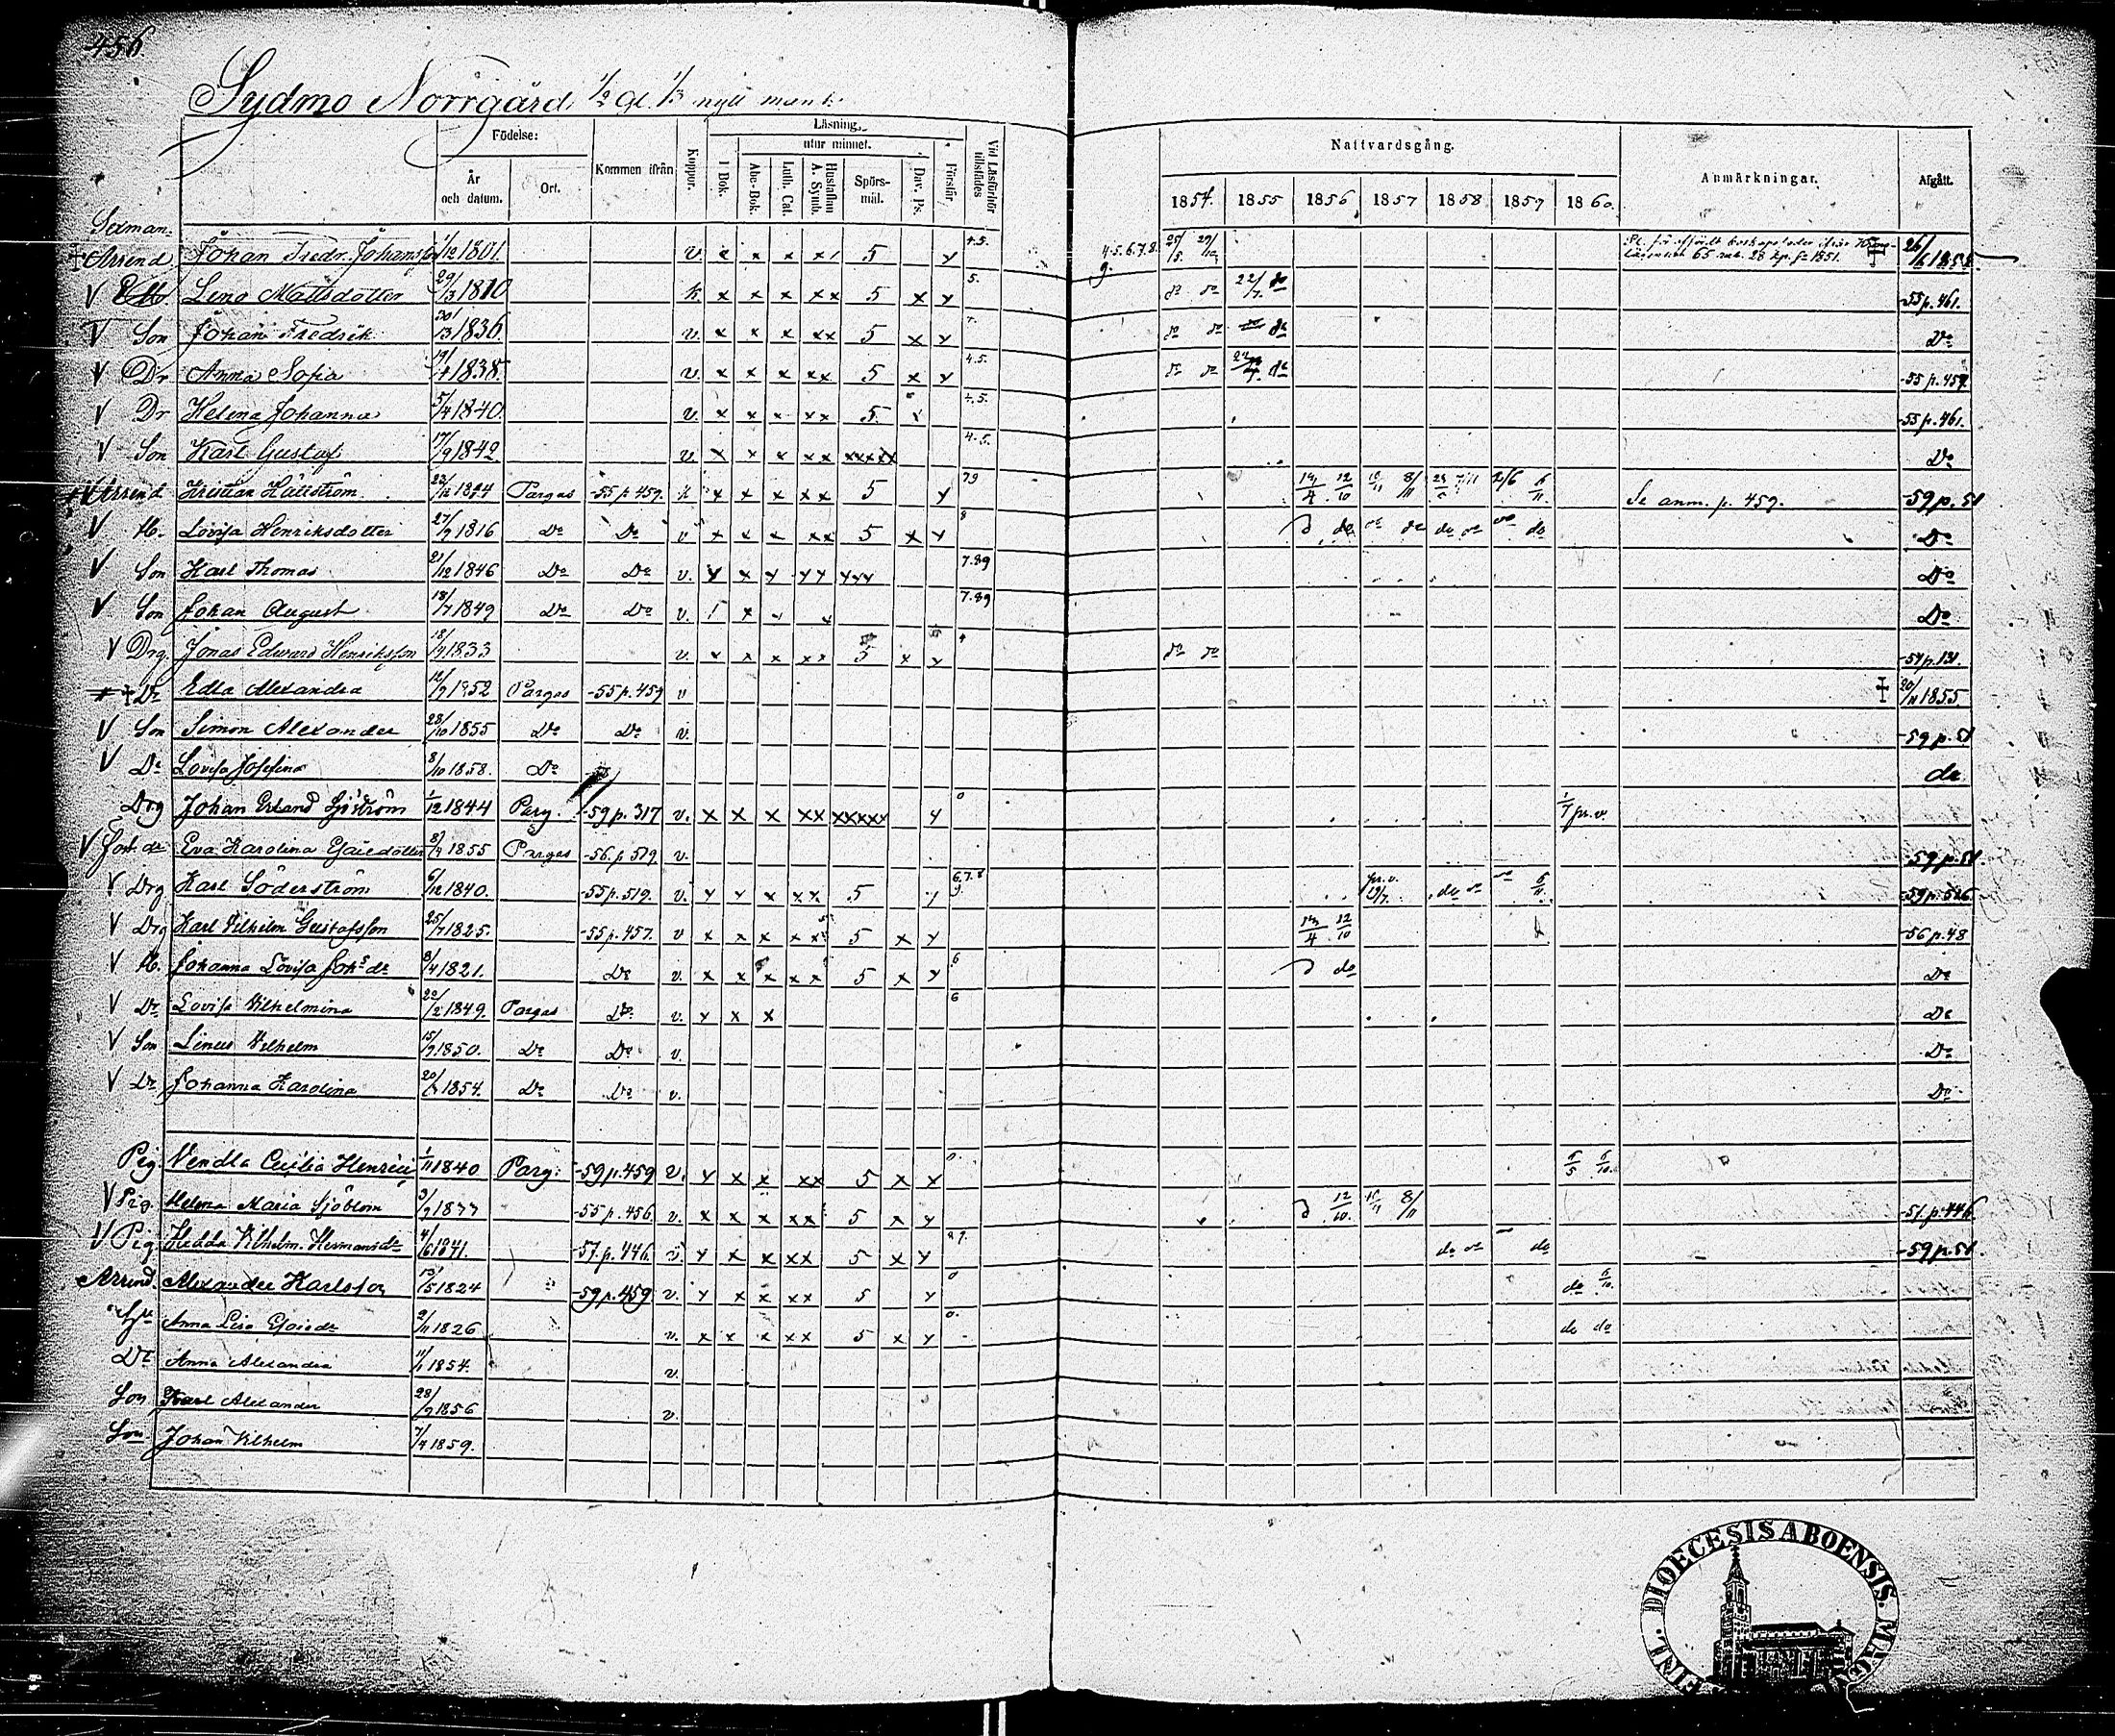 456.
Sydmo Norrgård 1/2 gl. 1/3 nytt mant:
Födelse: Kommen ifrån Koppor. Läsning, utur minnet. Vid Läsförhör tillstädes
År och datum. Ort. I Bok. Abc-Bok. Luth. Cat. Hustaflan A. Symb. Spörs-mål. Dav. Ps. Förstår
Nattvardsgång. Anmärkningar. Afgått.
1854. 1855 1856 1857 1858 1859 1860.
Sexman.
Arrend Johan Fredr. Johansson 1/12 1801. v. x x x x / 5 y 4.5. 4.5.6.7.8. 9. 25/5 29/10 26/6 1858
Lena Mattsdotter 29/3 1810 k x x x xx 5 x y 5. do do 22/7 do -55 p. 461.
V Son Johan Fredrik 20/3 1836. v. x x x xx 5 x y do do do do Do
V Dr Anna Sofia 19/4 1838. v. x x x xx 5 x y 4.5. do do do -55 p. 459.
V Dr Helena Johanna 5/4 1840. v. x x x xx 5. x 4.5. -55 p. 461.
V Son Karl Gustaf 17/9 1842 v. x x x xx xxxxx 4.5. Do
V Arrend Kristian Hällström Pargas -55 p. 459. k x x x xx 5 y 79 14/4 12/10 8/11 2/6 6/11 Se anm. p. 459. -59 p. 51
V H. Lovisa Henriksdotter 27/9 1816 Do Do v x x x xx 5 x y 8 do do do do do Do
V Son Karl Thomas 21/12 1846 Do Do v. y x y yy yyy 7.89 Do
V Son Johan August 18/7 1849 Do Do v. / x 7.89 Do
V Drg Jonas Edward Henriksson 18/9 1833 v. x x x xx 5 x y 4 do do -54 p. 131.
+ Dr Edla Alexandra 12/9 1852 Pargas -55 p. 459 v + 20/11 1855
V Son Simon Alexander 28/10 1855 Do Do v. -59 p. 51
V Dr Lovisa Josefina 8/10 1858. Do do
Drg Johan Erland Sjöström 1/12 1844 Parg. -59 p. 317 v. x x x xx xxxxx y 0 1/7 pr. v.
V Fost. dr Eva Karolina Esaiedotter 1855 Pargas -56. p 519 v. -59 p. 51
V Drg Karl Söderström 6/12 1840. -55 p. 519. v. y y x xx 5 y 6.7.8 9. pr. v. 19/7. do do 6/11. -59 p. 526
V Drg Karl Vilhelm Gustafsson 25/7 1825. -55 p. 457. v x x x x x 5 x y 14/4 12/10 -56 p. 48
V H. Johanna Lovisa Johsdr 8/4 1821. Do v. x x x x x 5 x y 6 do Do
V Dr Lovisa Vilhelmina 22/2 1849. Pargas Do v. y x x 6 Do
V Son Linus Vilhelm 15/9 1850. Do Do v. Do
V Dr Johanna Karolina 1854. Do Do v. Do
Pig. Vendla Cecilia Henrici 1/11 1840 Parg: -59 p. 459 v. y x x xx 5 x x 0. 6/5 6/10.
V Pig. Helena Maria Sjöblom -55 p. 456 v. x x x xx 5 x y 12/10. 8/11 -57. p. 446.
V Pig Hedda Vilhelm. Hermansdr 4/6 1841. -57. p. 446. v. y x x xx 5 x y 89. do do do -59 p. 51.
Arrend. Alexander Karlsson 13/5 1824 -59 p. 459 v. y x x xx 5 y 0 do 6/10.
Anna Lisa Esaiedr 2/11 1826 v. x x x xx 5 x y 0. do do
Dr Anna Alexandra 11/1 1854. v.
Son Karl Alexander 28/9 1856 v.
Son Johan Vilhelm 7/4 1859.
DIOECESIS ABOENSIS. FINL.